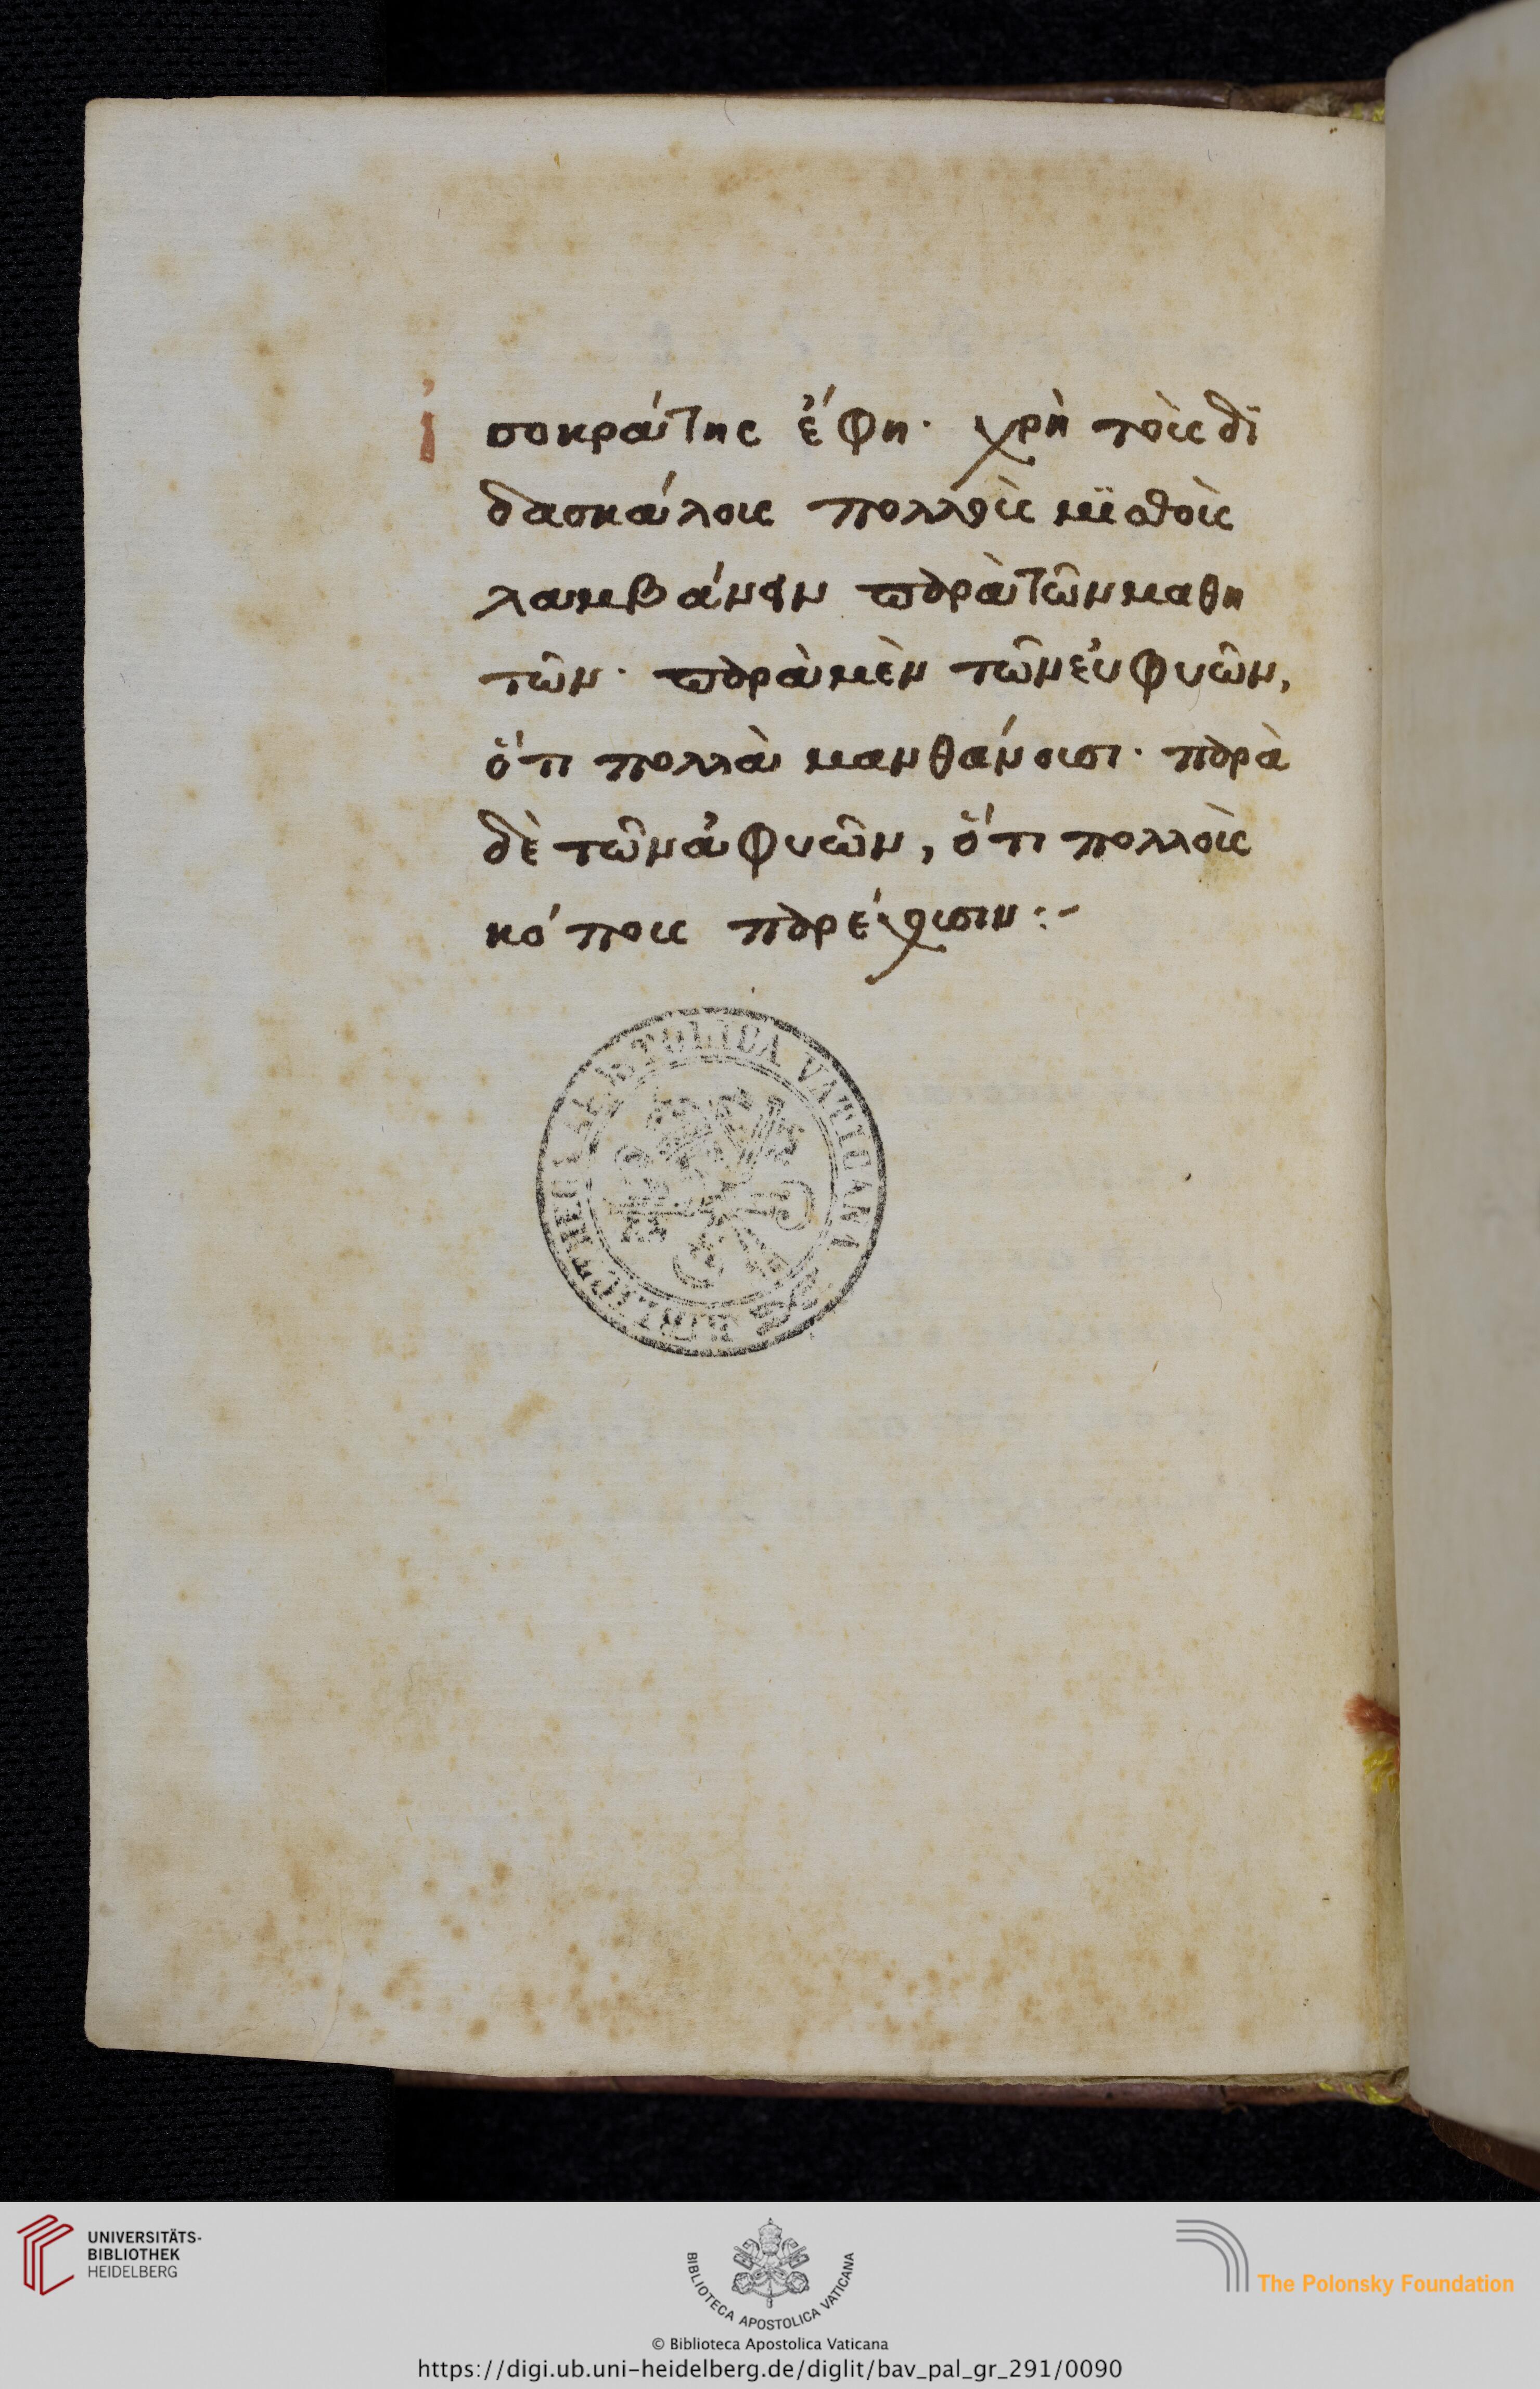 ἰσοκράτης ἔφη· χρὴ τοὺς δϊ
δασκάλους πολλοὺς μϊσθοὺς
λαμβάνειν παρὰ τῶν μαθη
τῶν· παρὰ μὲν τῶν εὐφυῶν,
ὅτι πολλὰ μανθάνουσι· παρὰ
δὲ τῶν ἀφυῶν, ὅτι πολλοὺς
κόπους παρέχουσιν:-
BIBLIOTHECA APOSTOLICA VATICANA
UNIVERSITÄTS-
BIBLIOTHEK
HEIDELBERG
BIBLIOTECA APOSTOLICA VATICANA
The Polonsky Foundation
© Biblioteca Apostolica Vaticana
https://digi.ub.uni-heidelberg.de/diglit/bav_pal_gr_291/0090